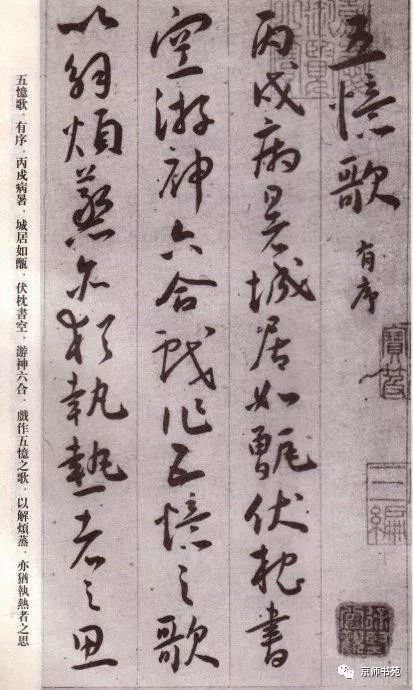 五憶歌 有序
丙戌病暑城居如甑伏枕書
空游神六合戲作五憶之歌
以解煩蒸亦猶執熱者之思
五憶歌·有序·丙戌病暑·城居如甑·伏枕書空·游神六合·戲作五憶之歌·以解煩蒸·亦猶執熱者之思
京师书苑